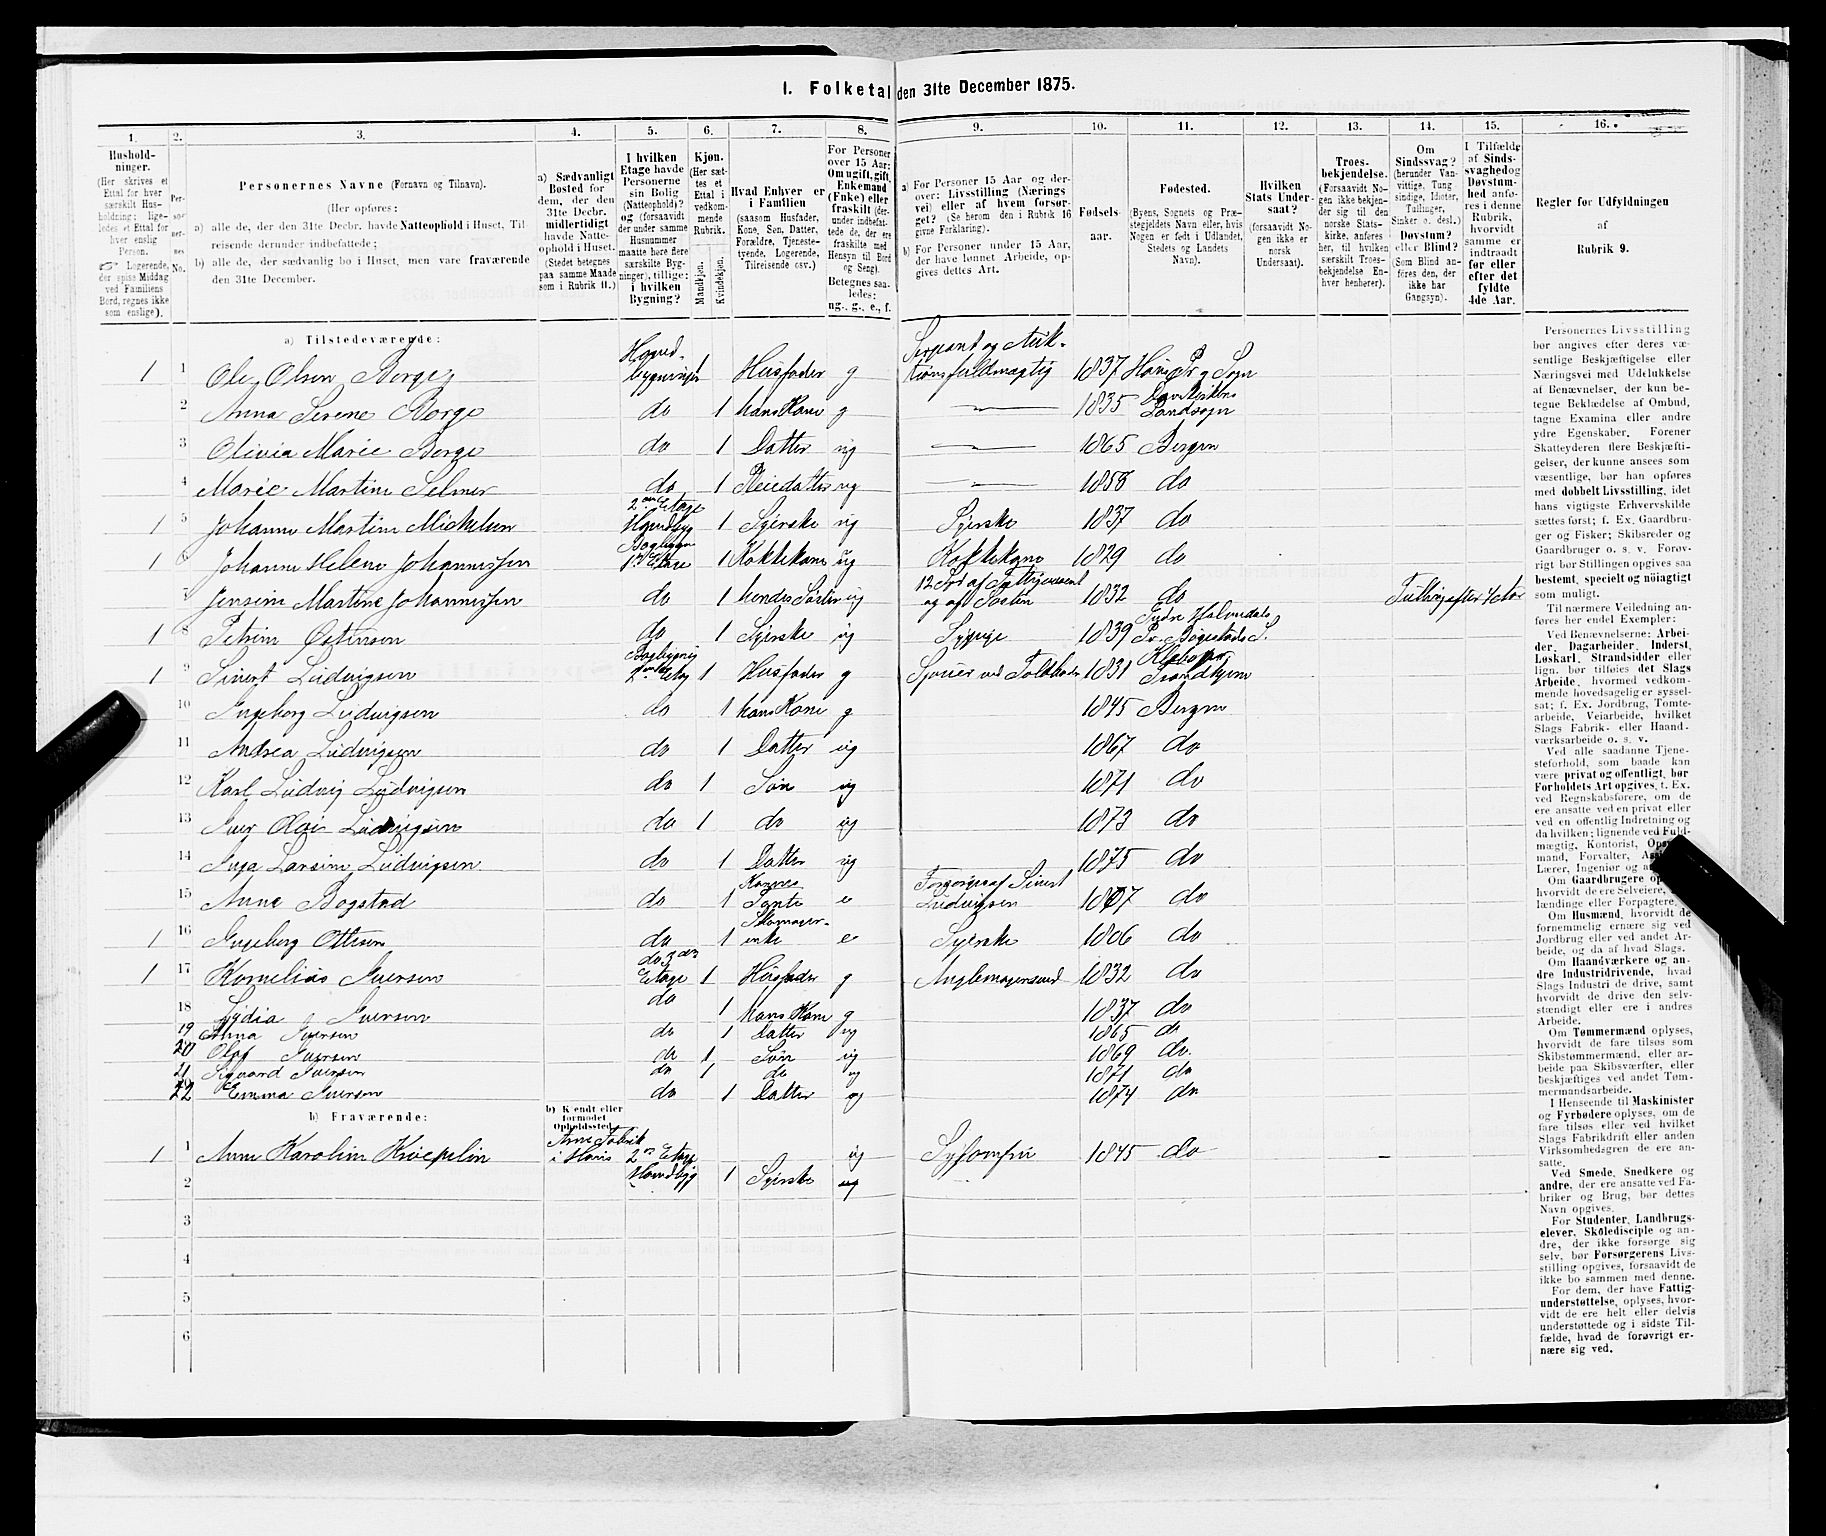 I. Folketal den 31te December 1875.
1. 2. 3. 4. 5. 6. 7. 8. 9. 10. 11. 12. 13. 14. 15. 16.
Hushold-
ninger.
(Her skrives et
Ettal for hver
særskilt Hus-
holdning; lige-
ledes et Ettal for
hver enslig
Person.
☞ Logerende,
der spise Middag
ved Familiens
Bord, regnes ikke
som enslige).
Per-
soner-
nes
No.
Personernes Navne (Fornavn og Tilnavn).
(Her opføres:
a) alle de, der den 31te Decbr. havde Natteophold i Huset, Til
reisende derunder indbefattede;
b) alle de, der sædvanlig bo i Huset, men vare fraværende
den 31te December.
a) Sædvanligt
Bosted for
dem, der den
31te Decbr.
midlertidigt
havde Natte-
ophold i Huset.
(Stedet betegnes
paa samme Maade
som i Rubrik 11.)
I hvilken
Etage havde
Personerne
sin Bolig
(Natteophold)?
og (forsaavidt
der under samme
Husnummer
maatte høre flere
særskilte Byg-
ninger), tillige:
i hvilken
Bygning?
Kjøn.
(Her sæt-
tes et
Ettal i
vedkom-
mende
Rubrik.
Mandkjøn.
Kvindekjøn.
Hvad Enhver er
i Familien
(saasom Husfader,
Kone, Søn, Datter,
Forældre, Tjeneste-
tyende, Logerende,
Tilreisende osv.)
For Personer
over 15 Aar:
Om ugift, gift,
Enkemand
(Enke) eller
fraskilt (der-
under indbefat-
tede de, der ere
fraskilte med
Hensyn til Bord
og Seng).
Betegnes saa-
ledes:
ug., g., e., f.
a) For Personer 15 Aar og der-
over: Livsstilling (Nærings
vei) eller af hvem forsør-
get? (Se herom den i Rubrik 16
givne Forklaring).
b) For Personer under 15 Aar,
der have lønnet Arbeide, op-
gives dettes Art.
Fødsels-
aar.
Fødested.
(Byens, Sognets og Præ-
stegjeldets Navn eller, hvis
Nogen er født i Udlandet,
Stedets og Landets
Navn).
Hvilken
Stats Under-
saat?
(forsaavidt No-
gen ikke er
norsk
Undersaat).
Troes-
bekjendelse.
(Forsaavidt No-
gen ikke bekjen-
der sig til den
norske Stats-
kirke, anføres
her, til hvilken
særskilt Troes-
bekjendelse En-
hver henhører).
Om
Sindssvag?
(herunder Van-
vittige, Tung
sindige, Idioter,
Tullinger,
Sinker o. desl.)
Døvstum?
eller Blind?
(Som Blind an-
føres den, der
ikke har
Gangsyn).
I Tilfælde
af Sinds-
svaghed og
Døvstum-
hed anfø-
res i denne
Rubrik,
hvorvidt
samme er
indtraadt
før eller
efter det
fyldte
4de Aar.
Regler for Udfyldningen
af
Rubrik 9.
a) Tilstedeværende:
1 1 Ole Olsen Borge Hoved-bygningen 1 Husfader g Sergeant og Auk-tionsfuldmægtig 1837 Sogn
2 Anna Serene Borge do 1 hans Kone g 1835 Landsogn
3 Olivia Marie Borge do 1 Datter ug 1865 Bergen
4 Marie Martine Selmer do 1 Pleiedatter ug 1858 do
1 5 Johanne Martine Michelsen 2den Etage 1 Syerske ug Syerske 1837 do
1 6 Johanne Helene Johannessen 1ste Etage 1 Kokkekone ug Kokkekone 1829 do
7 Jensine Martine Johannessen do 1 hendes Søster ug og af Søsteren 1832 do
1 8 Petrine Ostensen do 1 Syerske ug Sypige 1839
1 9 Sivert Ludvigsen Bagbygning 2den Etag 1 Husfader g 1831 Klebo Trondhjem
10 Ingeborg Ludvigsen do 1 hans Kone g 1845 Bergen
11 Andrea Ludvigsen do 1 Datter ug 1867 do
12 Karl Ludvig Ludvigsen do 1 Søn ug 1871 do
13 Iver Olai Ludvigsen do 1 do ug 1873 do
14 Inga Larsine Ludvigsen do 1 Datter ug 1875 do
15 Anne Bogstad do 1 Konens Tante e Forsørges af Sivert Ludvigsen 1807 do
1 16 Ingeborg Ottesen do 1 Skomager-enke e Syerske 1806 do
1 17 Kornelius Iversen do 3die Etage 1 Husfader g Anglemagersvend 1832 do
18 Lydia Iversen do 1 hans Kone g 1837 do
19 Anna Iversen do 1 Datter ug 1865 do
20 Olaf Iversen do 1 Søn ug 1869 do.
21 Sigvard Iversen do 1 do ug 1871 do
22 Emma Iversen do 1 Datter ug 1874 do
b) Fraværende:
b) Kjendt eller
formodet
Opholdssted.
1 1 Anne Karoline Kroepelin Arne Fabrik i Haus 2den Etage ug Syjomfru 1845 do
2 1 Syerske ug
3
4
5
6
Personernes Livsstilling
bør angives efter deres væ-
sentlige Beskjæftigelse eller
Næringsvei med Udelukkelse
af Benævnelser, der kun be-
tegne Beklædelse af Ombud,
tagne Examina eller andre
ydre Egenskaber. Forener
Skatteyderen flere Beskjæfti-
gelser, der kunne ansees som
væsentlige, bør han opføres
med dobbelt Livsstilling, idet
hans vigtigste Erhvervskilde
sættes først; f. Ex. Gaardbru-
ger og Fisker; Skibsreder og
Gaardbruger o. s. v. Forøv-
rigt bør Stillingen opgives saa
bestemt, specielt og nøiagtigt
som muligt.
Til nærmere Veiledning an-
føres her endel Exempler:
Ved Benævnelserne: Arbei-
der, Dagarbeider, Inderst,
Løskarl, Strandsidder eller
lign. bør tilføies det Slags
Arbeide, hvormed vedkom-
mende hovedsagelig er syssel-
sat; f. Ex. Jordbrug, Tomte-
arbeide, Veiarbeide, hvilket
Slags Fabrik- eller Haand-
værksarbeide o. s. v.
Ved alle saadanne Tjene-
steforhold, som baade kan
være privat og offentligt, bør
Forholdets Art opgives, f. Ex.
ved Regnskabsførere, om de
ere ansatte ved en privat eller
ved en offentlig Indretning og
da hvilken; lignende ved Fuld-
mægtig, Kontorist,
mand, Forvalter,
Lærer, Ingeniør og
Om Gaardbrugere
hvorvidt de ere Selveiere,
lændinge eller Forpagtere.
Om Husmænd, hvorvidt de
fornemmelig ernære sig ved
Jordbrug eller ved andet Ar-
beide, og da af hvad Slags.
Om Haandværkere og an-
dre Industridrivende, hvad
Slags Industri de drive, samt
hvorvidt de drive den selv-
stændigt eller ere i andres
Arbeide.
Om Tømmermænd oplyses,
hvorvidt de fare tilsøs som
Skibstømmermænd, eller ar-
beide paa Skibsværfter, eller
beskjæftiges ved andet Tøm-
mermandsarbeide.
I Henseende til Maskinister
og Fyrbødere oplyses, om de
fare tilsøs eller ved hvilket
Slags Fabrikdrift eller anden
Virksomhedsgren de ere an-
satte.
Ved Smede, Snedkere og
andre, der ere ansatte ved Fa-
briker og Brug, bør dettes
Navn opgives.
For Studenter, Landbrugs-
elever, Skoledisciple og an-
dre, der ikke forsørge sig
selv, bør Forsørgerens Livs-
stilling opgives, forsaavidt de
ikke bo sammen med denne.
For dem, der have Fattig-
understøttelse, oplyses, hvor-
vidt de ere helt eller delvis
understøttede og i sidste Til-
fælde, hvad de forøvrigt er-
nære sig ved.